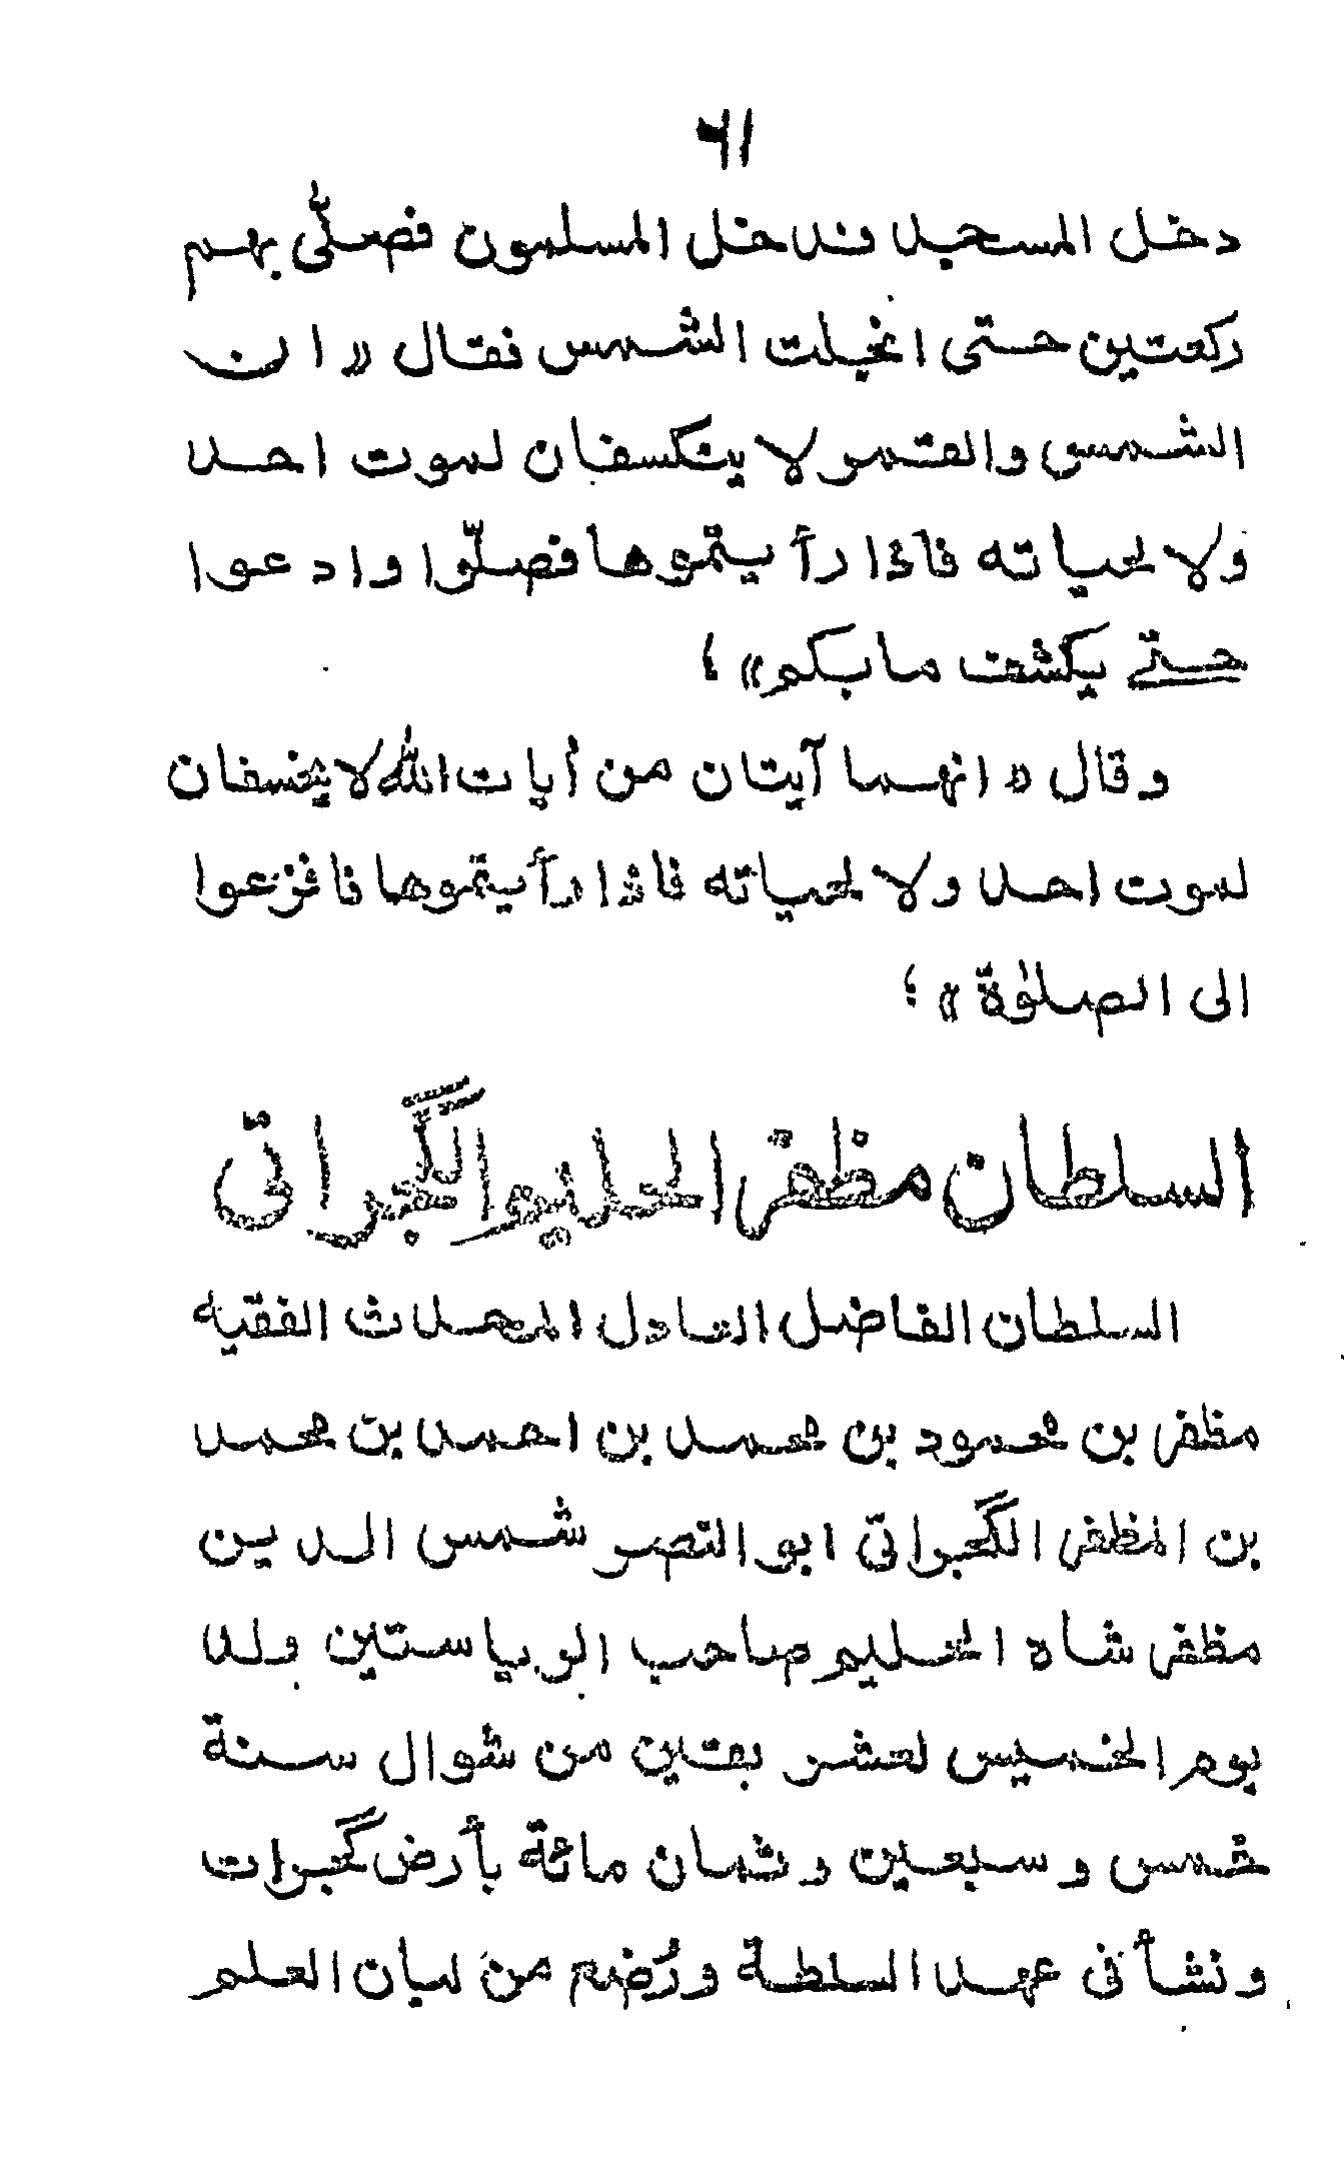 ٦١
دخل المسجد فدخل المسلمون فصلّى بهم
ركعتين حتى انجلت الشمس فقال «ان
الشمس والقمر لا ينكسفان لموت احد
ولا لحياته فاذا رأيتموها فصلّوا وادعوا
حتى يكشف مابكم» ؛
وقال «انهما آيتان من أيات الله لا يخسفان
لموت احد ولا لحياته فاذا رأيتموها فافزعوا
الى الصلوٰة» ؛
السلطان مظفر الحليم الگجراتى
السلطان الفاضل العادل المحدث الفقيه
مظفر بن محمود بن محمد بن احمد بن محمد
بن المظفر الگجراتى ابو النصر شمس الدين
مظفر شاه الحليم صاحب الرياستين ولد
يوم الخميس لعشر بقين من شوال سنة
خمس و سبعين و ثمان مائة بأرض گجرات
ونشأ فى عهد السلطة ورُضع من لبان العلم